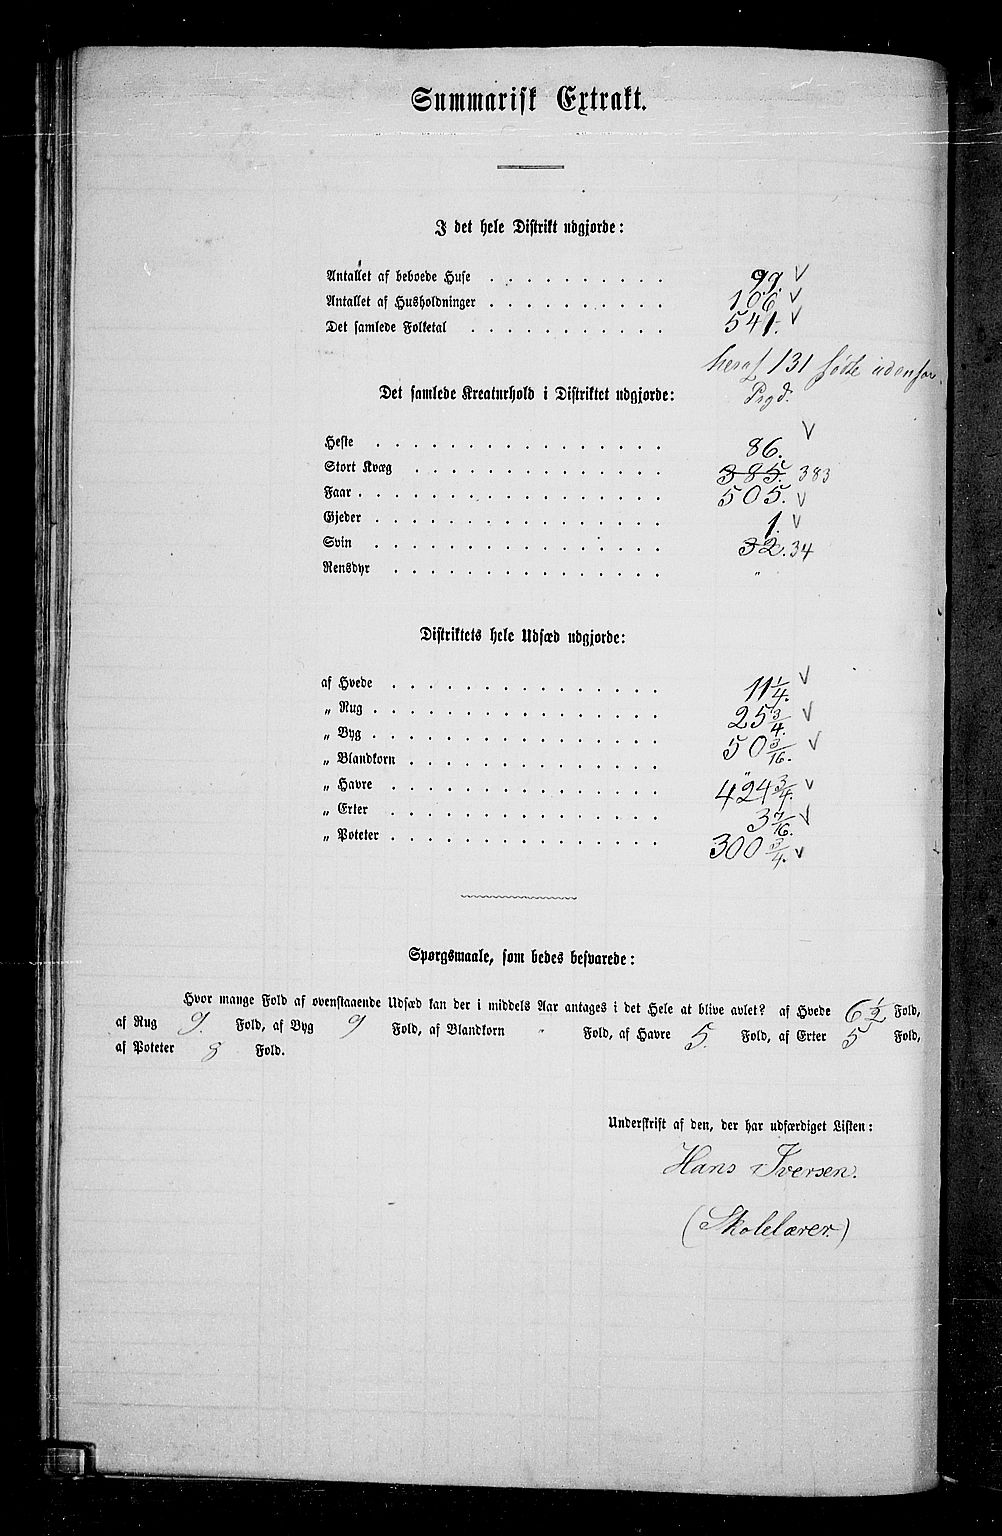 Summarisk Extrakt.
I det hele Distrikt udgjorde:
Antallet af beboede Huse . . . . . . . . . . 99. ✓
Antallet af Husholdninger . . . . . . . . . . 106 ✓
Det samlede Folketal . . . . . . . . . . 541. ✓
heraf 131 fødte udenfor
Prgd.
Det samlede Kreaturhold i Distriktet udgjorde:
Heste . . . . . . . . . . 86. ✓
Stort Kvæg . . . . . . . . . . 385. 383
Faar . . . . . . . . . . 505. ✓
Gjeder . . . . . . . . . . 1. ✓
Svin . . . . . . . . . . 32. 34
Rensdyr . . . . . . . . . . "
Distriktets hele Udsæd udgjorde:
af Hvede . . . . . . . . . . 11 1/4. ✓
„ Rug . . . . . . . . . . 25 3/4. ✓
„ Byg . . . . . . . . . . 50 3/16. ✓
„ Blandkorn . . . . . . . . . . "
„ Havre . . . . . . . . . . 424 3/4. ✓
„ Erter . . . . . . . . . . 3 7/16. ✓
„ Poteter . . . . . . . . . . 300 3/4. ✓
Spørgsmaale, som bedes besvarede:
Hvor mange Fold af ovenstaaende Udsæd kan der i middels Aar antages i det Hele at blive avlet? af Hvede 6 1/2 Fold,
af Rug 9. Fold, af Byg 9 Fold, af Blandkorn " Fold, af Havre 5. Fold, af Erter 5 Fold,
af Poteter 8 Fold.
Underskrift af den, der har udfærdiget Listen:
Hans Iversen.
(Skolelærer.)